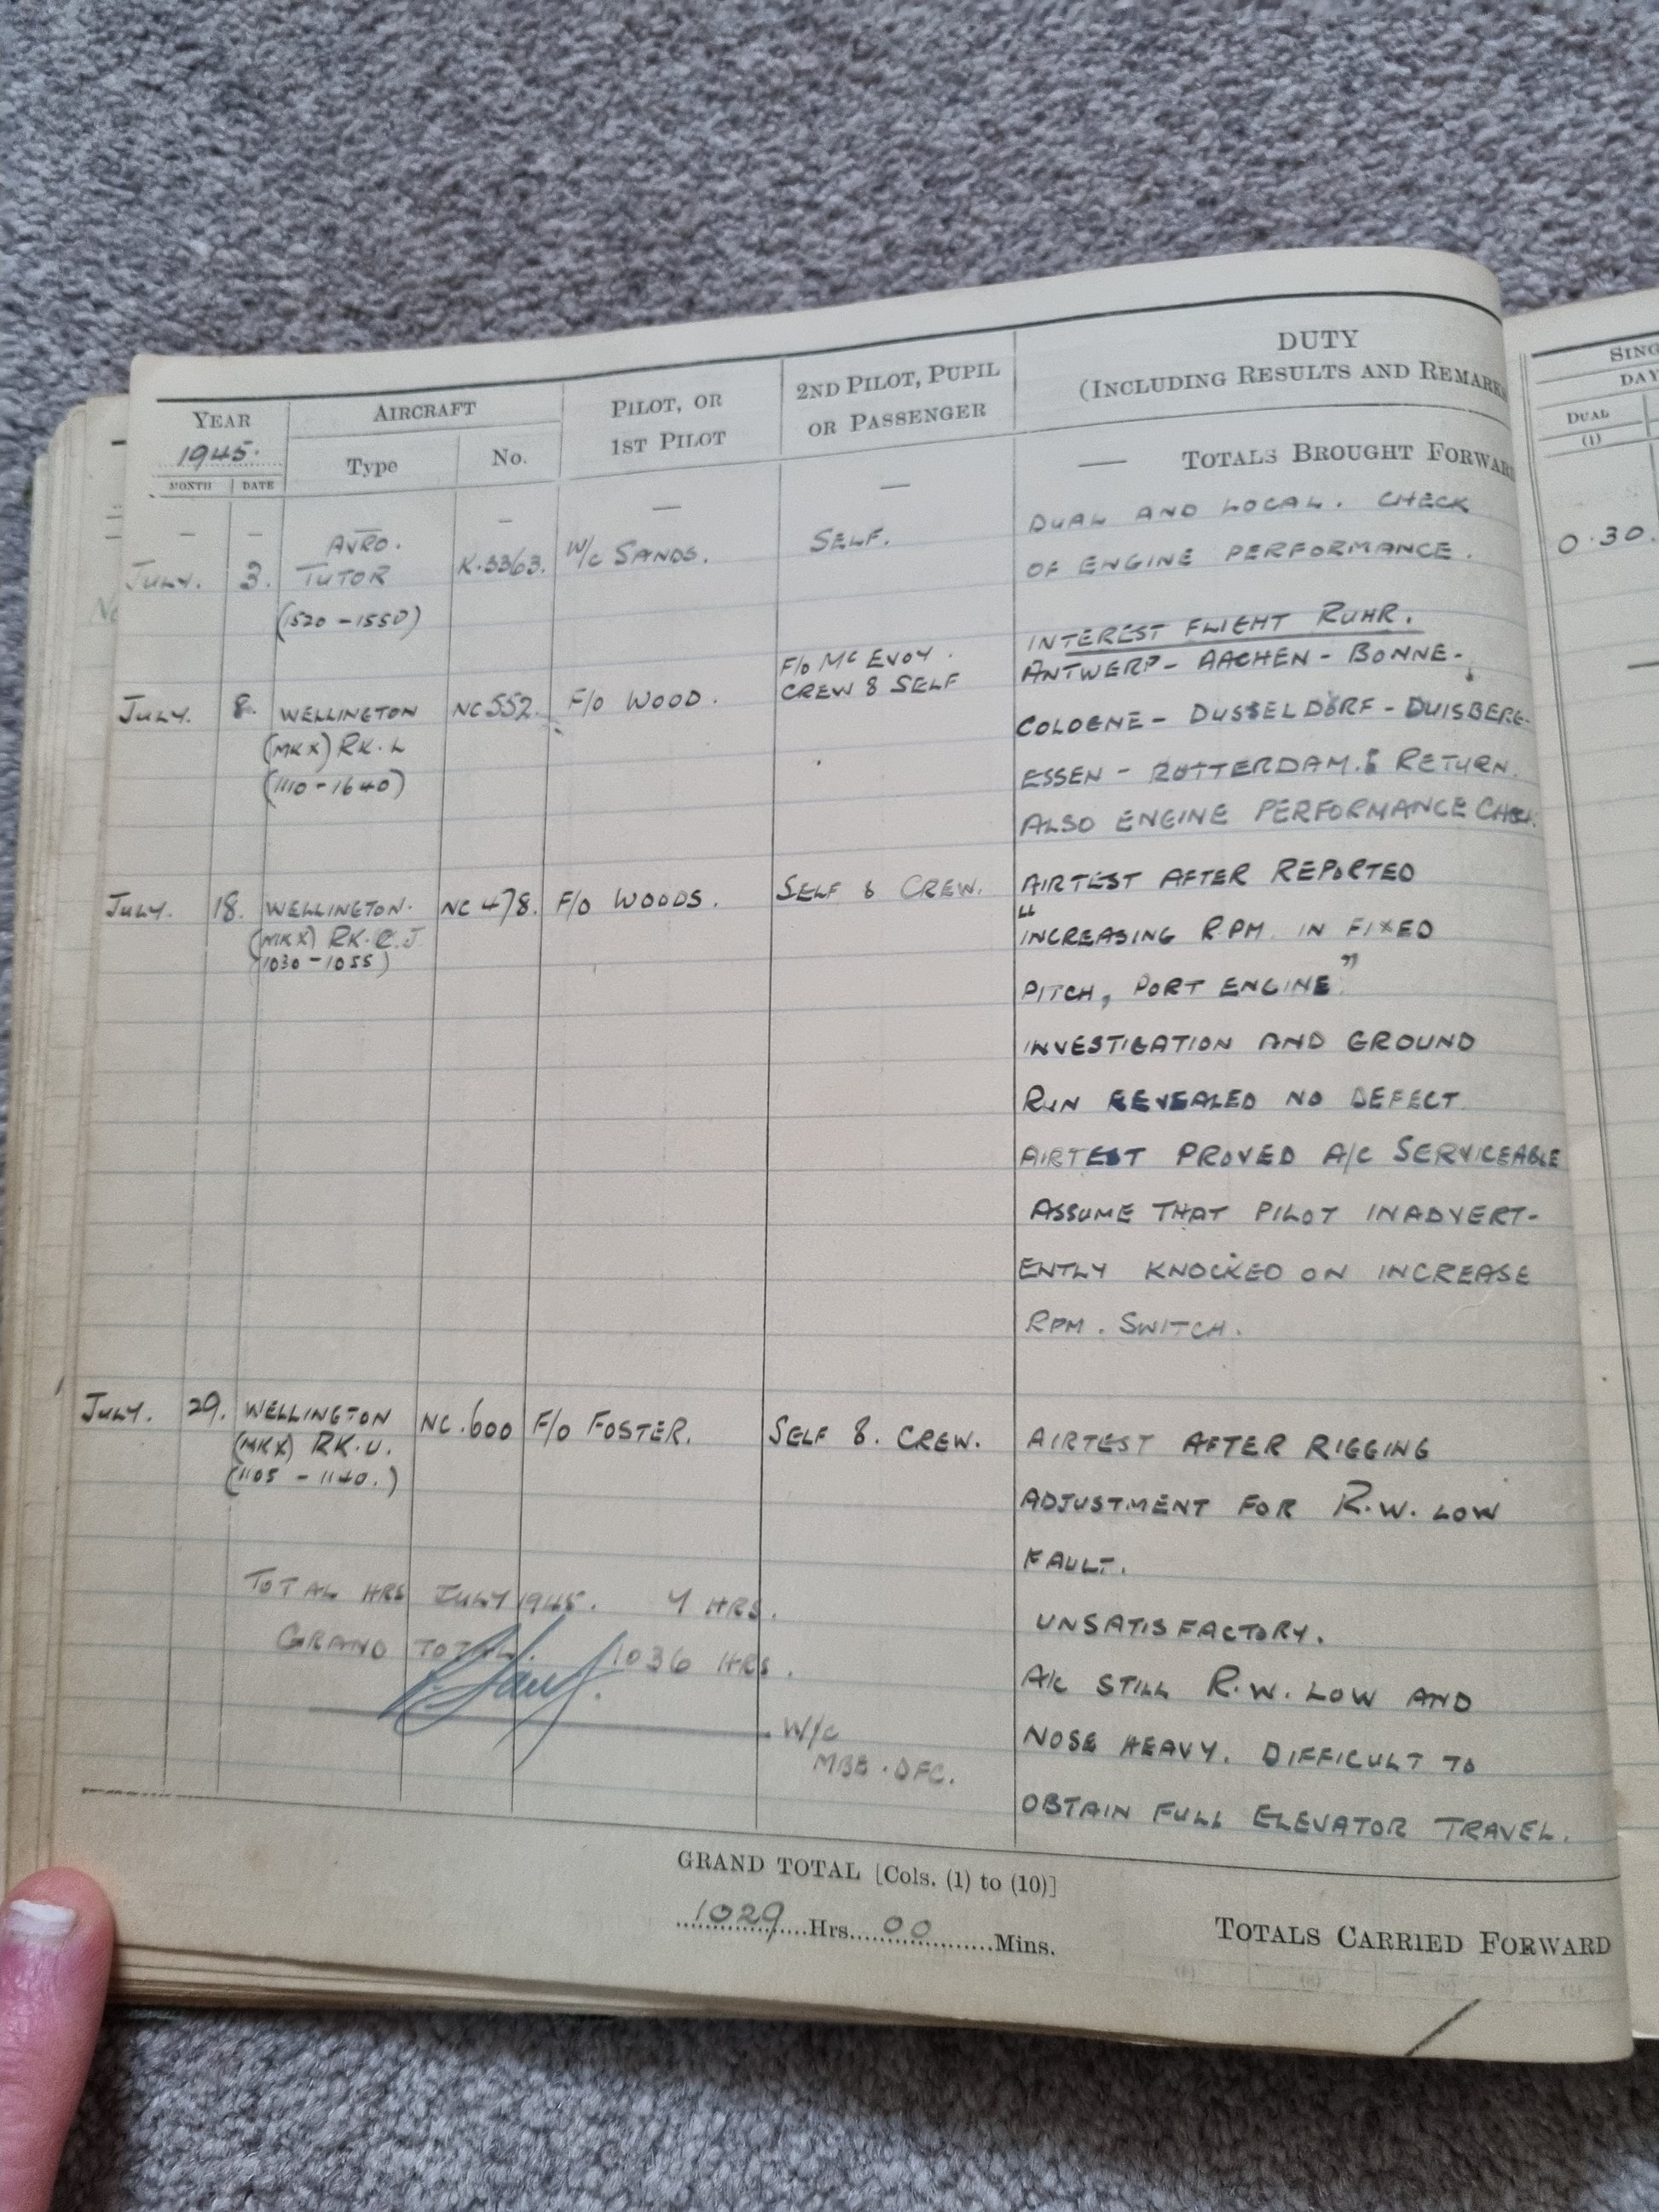 YEAR
1945.
MONTH DATE
AIRCRAFT
Type No.
PILOT, OR
1ST PILOT
2ND PILOT, PUPIL
OR PASSENGER
DUTY
(INCLUDING RESULTS AND REMARKS
— TOTALS BROUGHT FORWARD
— — — — — —
JULY. 3. AVRO. TUTOR K.3363. W/C SANDS. SELF.
(1520 - 1550)
DUAL AND LOCAL. CHECK
OF ENGINE PERFORMANCE.
JULY. 8. WELLINGTON NC 552. F/O WOOD. F/O MC EVOY.
CREW & SELF
(MK X) RK. L
(1110 - 1640)
INTEREST FLIGHT RUHR.
ANTWERP - AACHEN - BONNE -
COLOGNE - DUSSELDORF - DUISBERG-
ESSEN - ROTTERDAM. & RETURN.
ALSO ENGINE PERFORMANCE CHECK.
JULY. 18. WELLINGTON. NC 478. F/O WOODS. SELF & CREW.
(MK X) RK. J
(1030 - 1055)
AIRTEST AFTER REPORTED
"INCREASING R.P.M. IN FIXED
PITCH, PORT ENGINE"
INVESTIGATION AND GROUND
RUN REVEALED NO DEFECT
AIRTEST PROVED A/C SERVICEABLE
ASSUME THAT PILOT INADVERT-
ENTLY KNOCKED ON INCREASE
RPM. SWITCH.
JULY. 29. WELLINGTON NC.600 F/O FOSTER. SELF & CREW.
(MK X) RK. U.
(1105 - 1140.)
AIRTEST AFTER RIGGING
ADJUSTMENT FOR R.W. LOW
FAULT.
UNSATISFACTORY.
A/C STILL R.W. LOW AND
NOSE HEAVY. DIFFICULT TO
OBTAIN FULL ELEVATOR TRAVEL.
TOTAL HRS JULY 1945. 7 HRS.
GRAND TOTAL. 1036 HRS.
W/C
MBE. DFC.
GRAND TOTAL [Cols. (1) to (10)]
1029 Hrs. 00 Mins.
TOTALS CARRIED FORWARD
SING
DAY
DUAL
(1)
0.30.